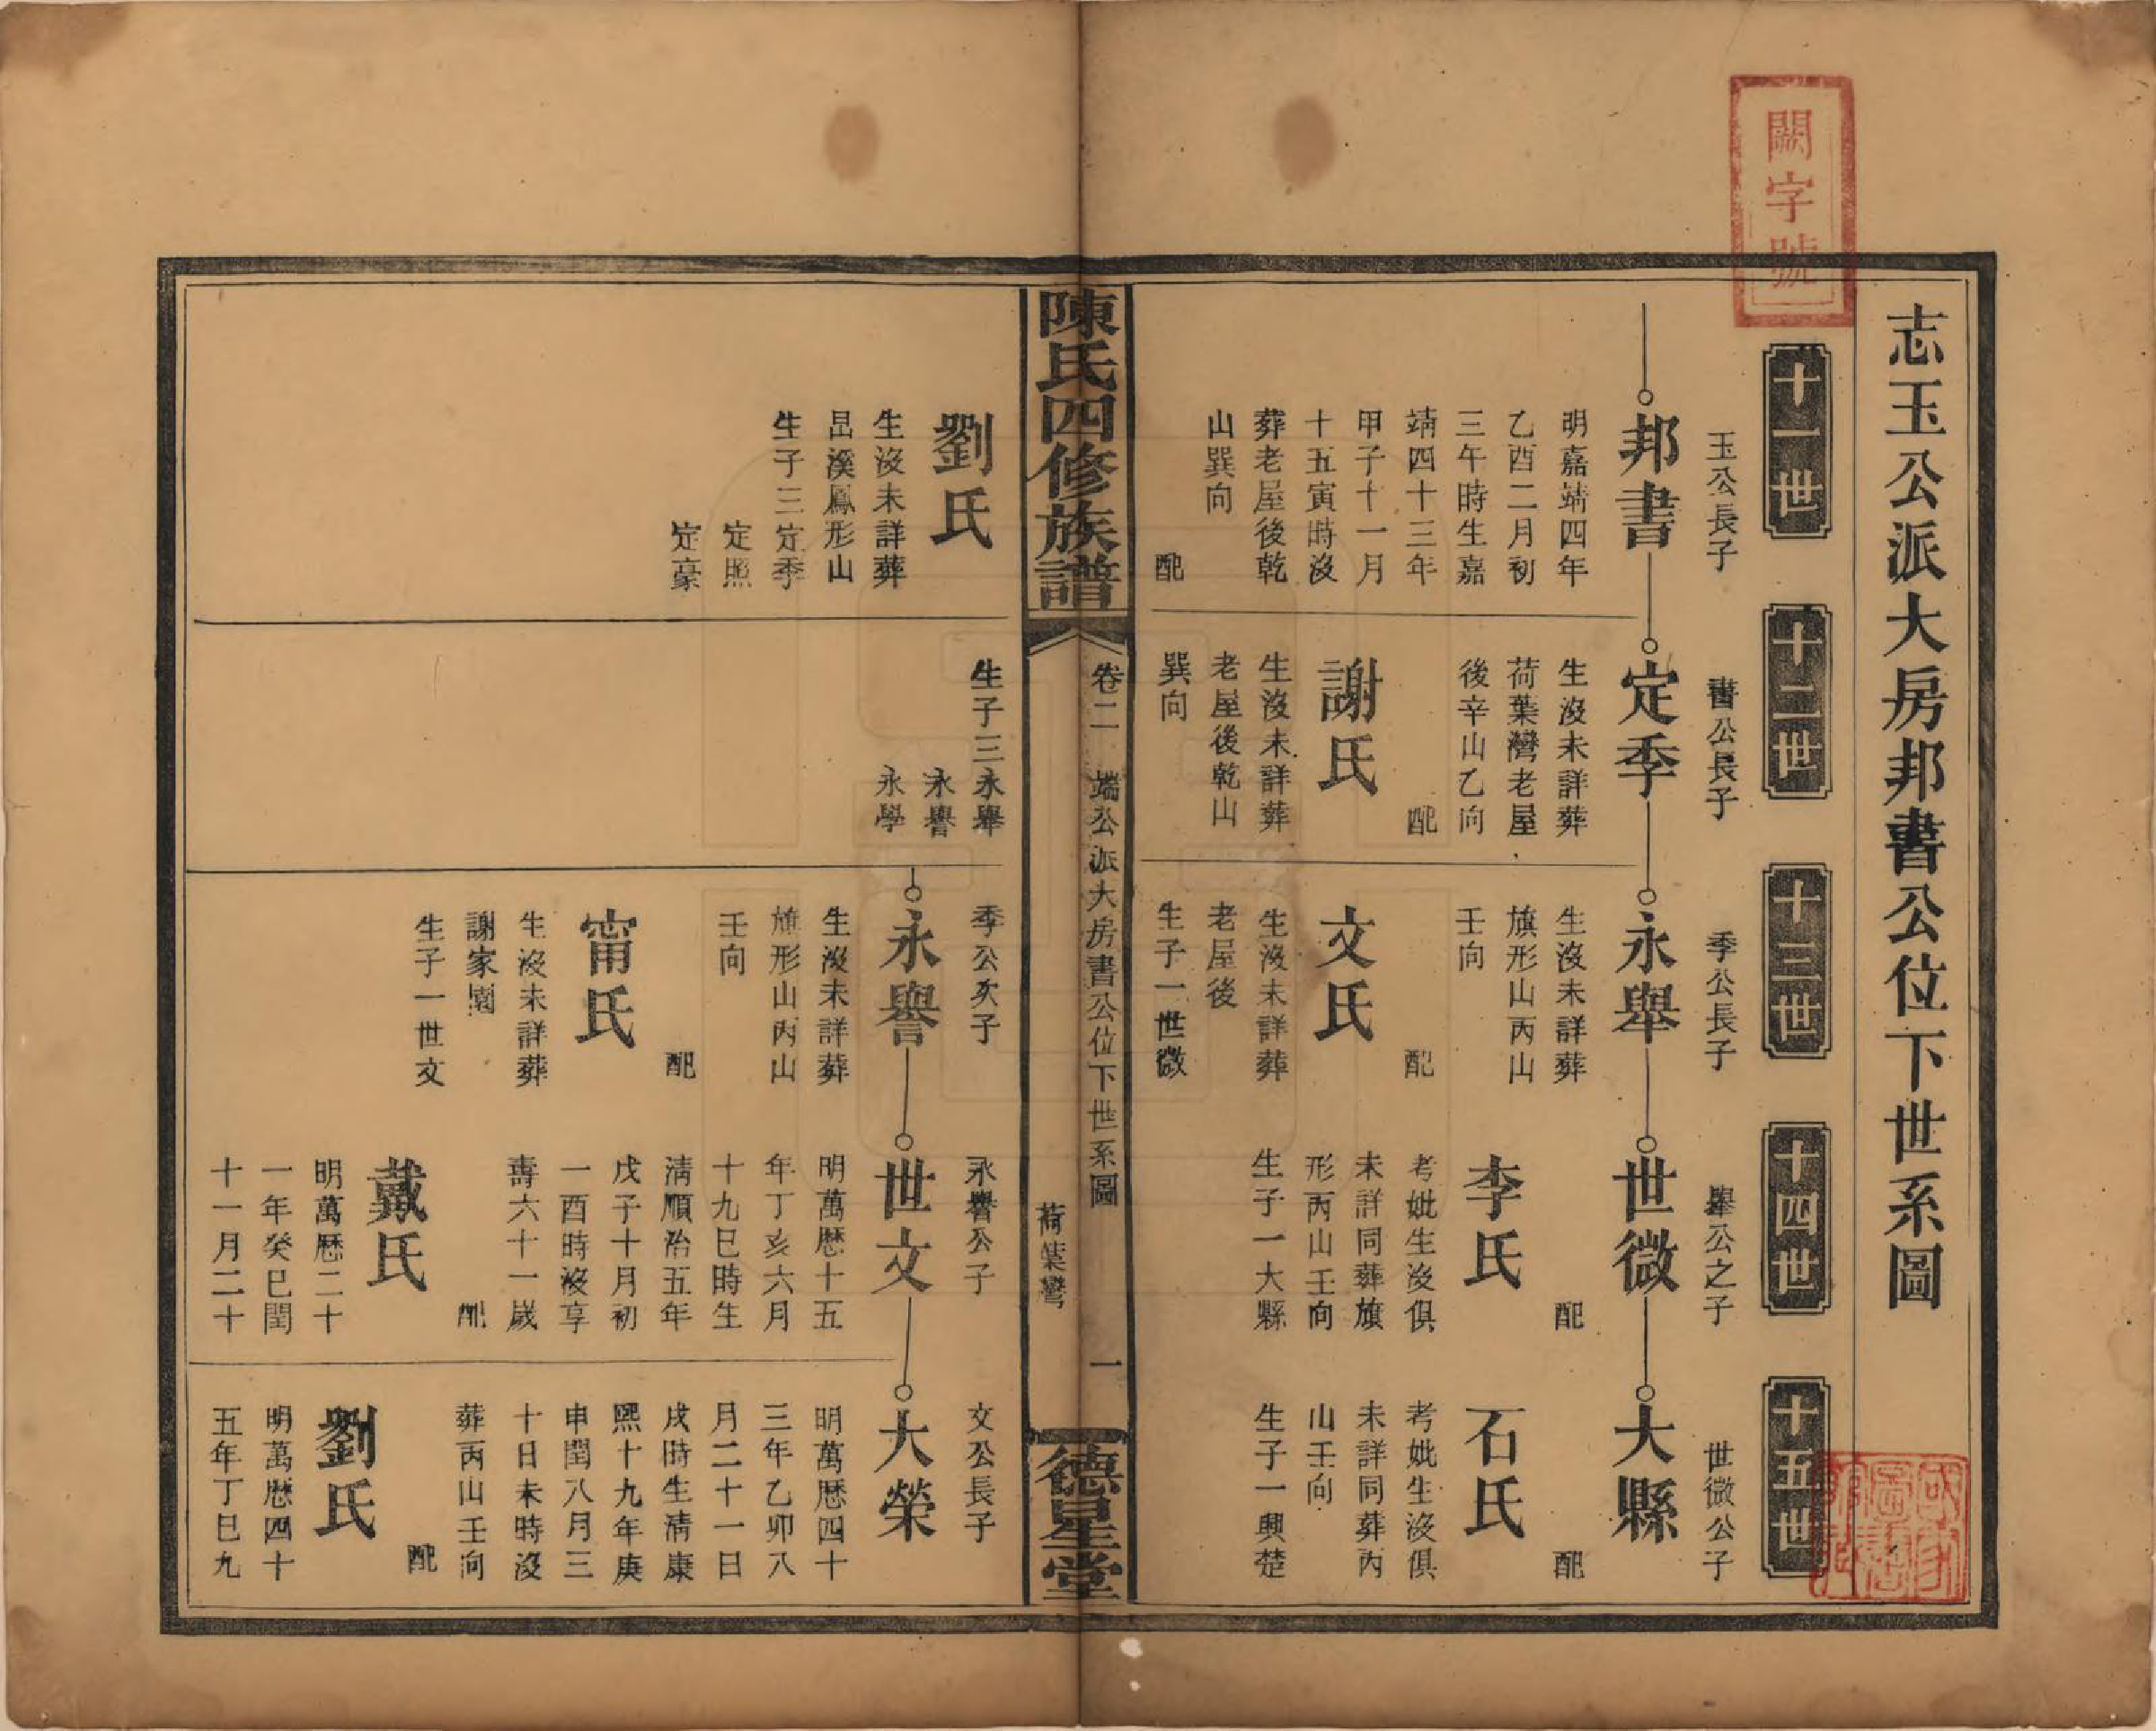 闕字號
志玉公派大房邦書公位下世系圖
十一世
十二世
十三世
十四世
十五世
玉公長子
邦書
明嘉靖四年
乙酉二月初
三午時生嘉
靖四十三年
甲子十一月
十五寅時沒
葬老屋後乾
山巽向
配
書公長子
定季
生沒未詳葬
荷葉灣老屋
後辛山乙向
配
謝氏
生沒未詳葬
老屋後乾山
巽向
季公長子
永舉
生沒未詳葬
旗形山丙山
壬向
配
文氏
生沒未詳葬
老屋後
生子一世微
舉公之子
世微
配
李氏
考妣生沒俱
未詳同葬旗
形丙山壬向
生子一大縣
世微公子
大縣
配
石氏
考妣生沒俱
未詳同葬丙
山壬向
生子一興楚
陳氏四修族譜
卷二
端公派大房書公位下世系圖
荷葉灣
一
德星堂
劉氏
生沒未詳葬
昷溪鳳形山
生子三定季
定照
定豪
生子三永舉
永譽
永學
季公次子
永譽
生沒未詳葬
旗形山丙山
壬向
配
甯氏
生沒未詳葬
謝家園
生子一世文
永譽公子
世文
明萬歷十五
年丁亥六月
十九巳時生
清順治五年
戊子十月初
一酉時沒享
壽六十一歲
配
戴氏
明萬歷二十
一年癸巳閏
十一月二十
文公長子
大榮
明萬歷四十
三年乙卯八
月二十一日
戌時生清康
熙十九年庚
申閏八月三
十日未時沒
葬丙山壬向
配
劉氏
明萬歷四十
五年丁巳九